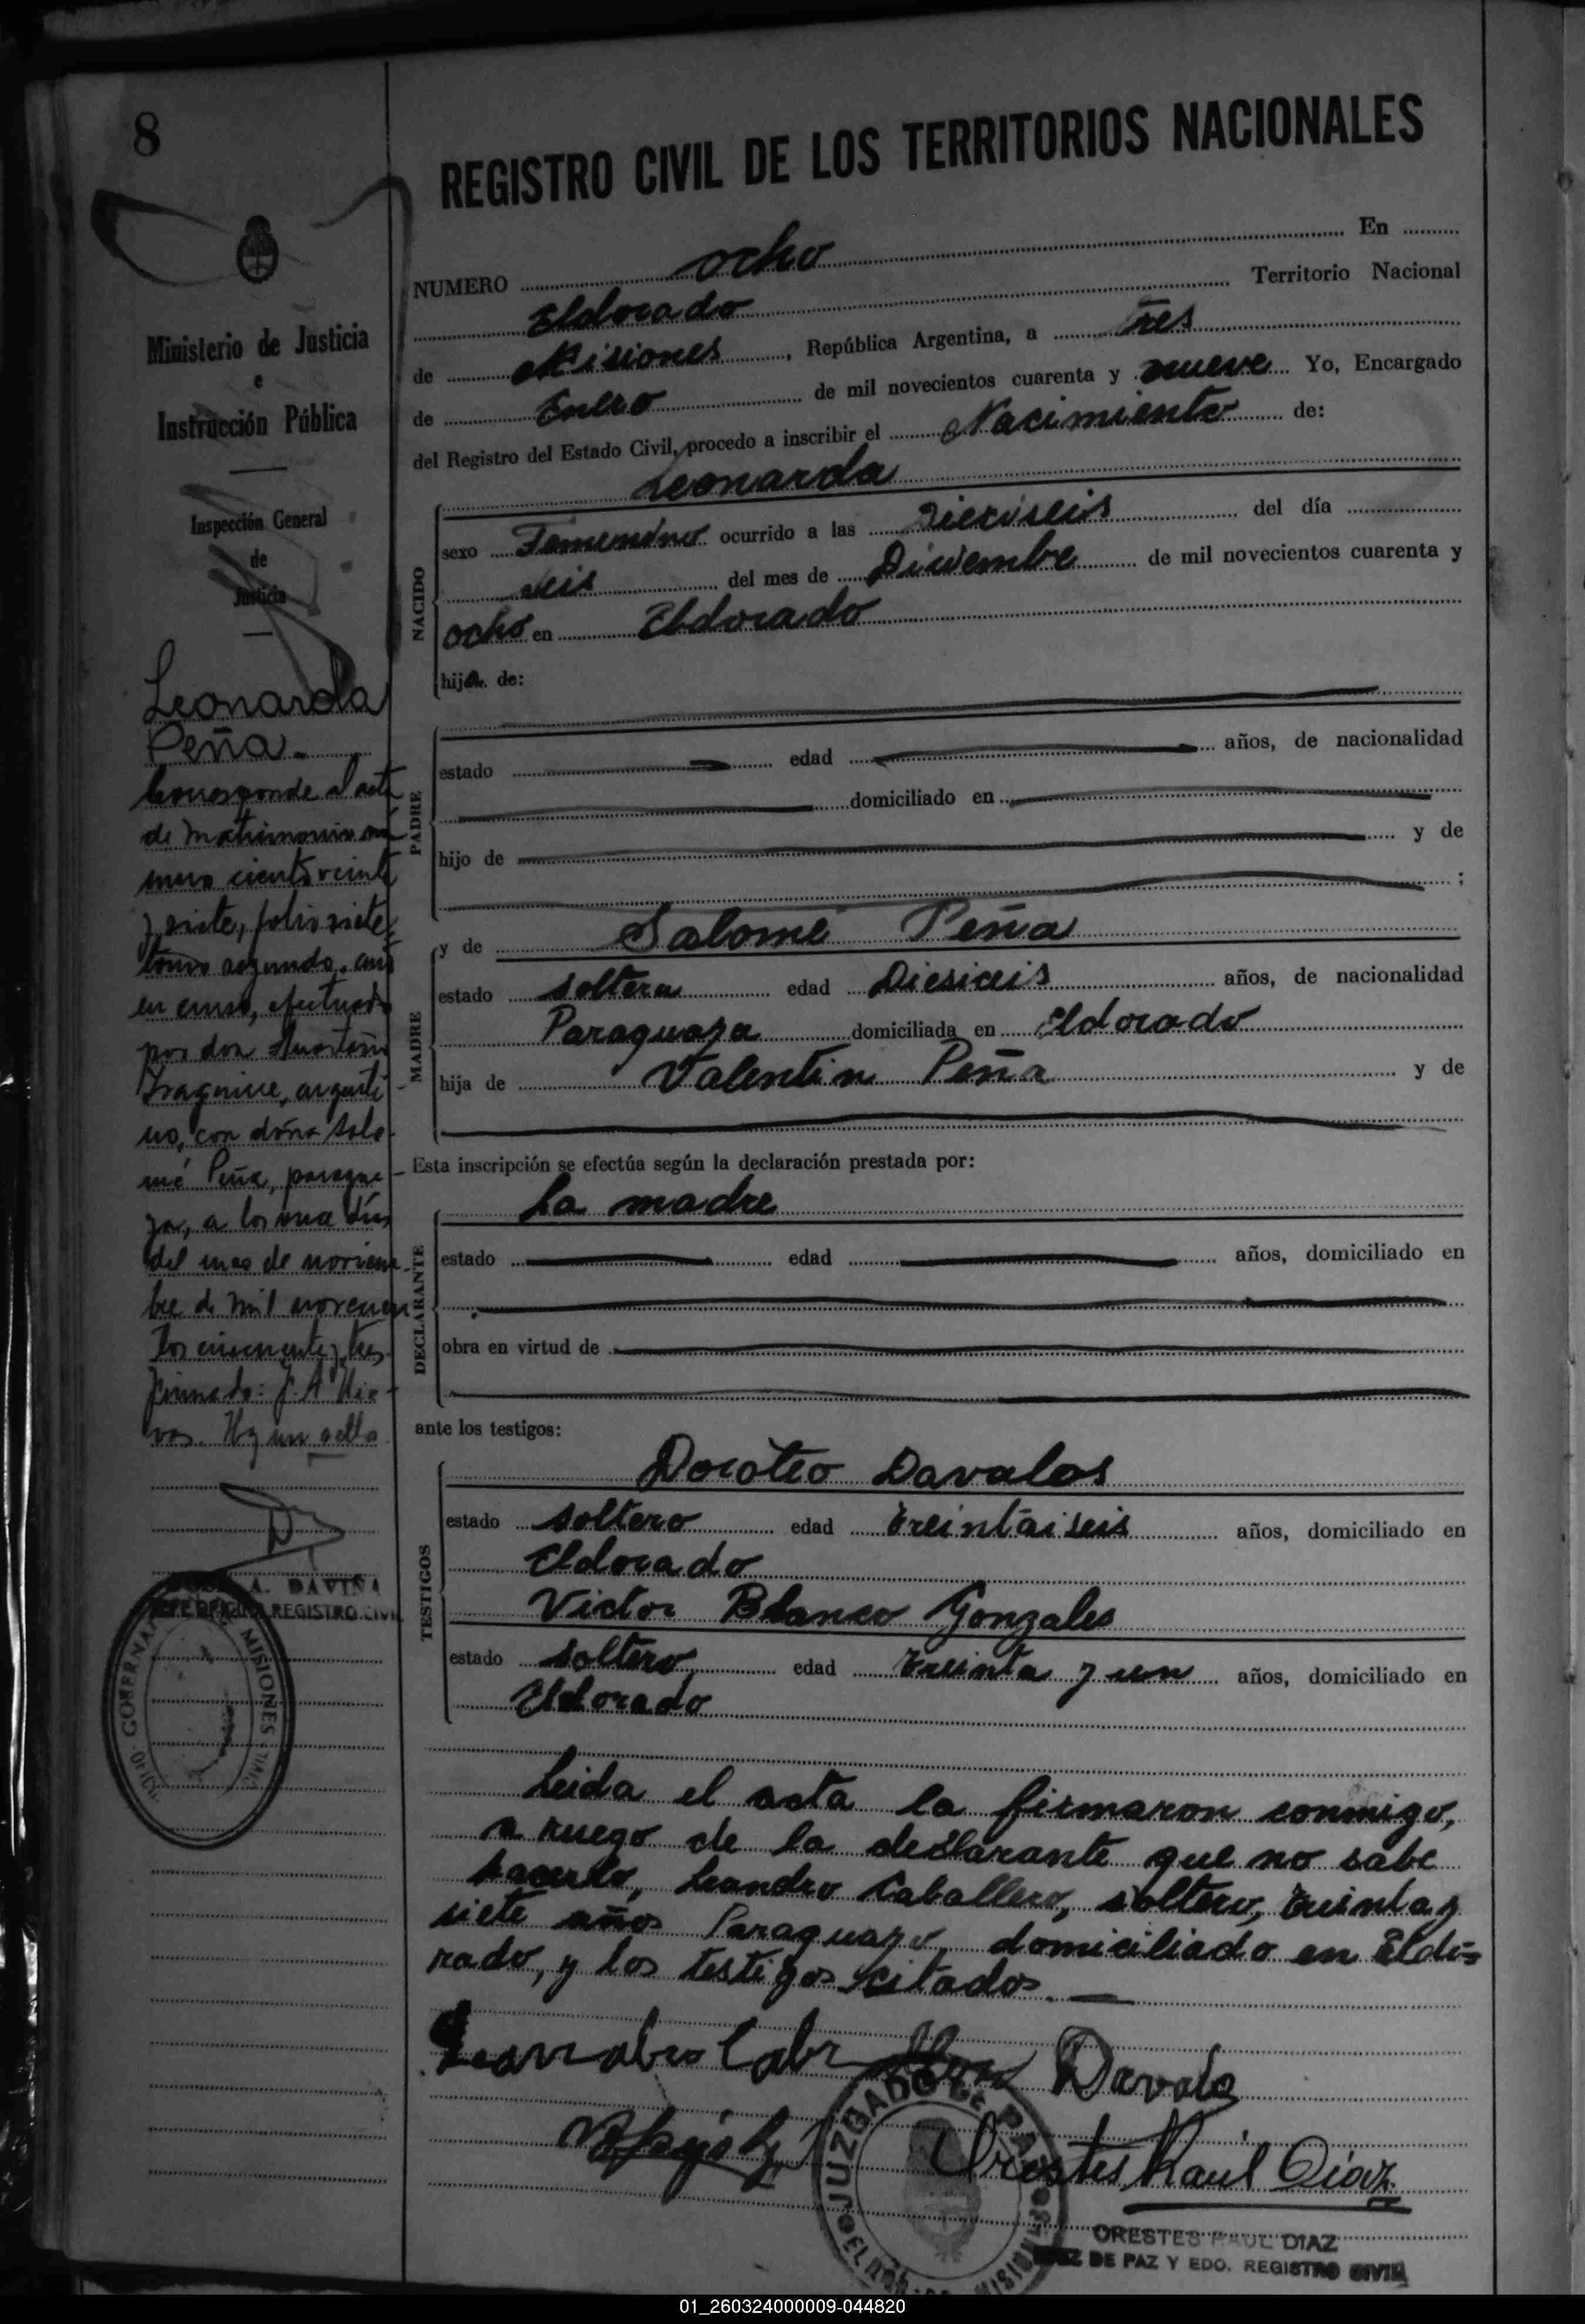 8
Ministerio de Justicia
e
Instrucción Pública
Inspección General
de
Justicia
Leonarda
Peña.
Corresponde al acta
de matrimonio nú
mero ciento veinte
y siete, folio siete,
tomo segundo, año
en curso, efectuado
por don
argenti
no, con doña Salo
mé Peña, paragua
ya, a los once días
del mes de noviem
bre de mil novecien
tos cincuenta y tres.
Firmado: J. A.
Hay un sello
A. DAVIÑA
JEFE OFICINA REGISTRO CIVIL
GOBERNA MISIONES
REGISTRO CIVIL DE LOS TERRITORIOS NACIONALES
NUMERO ocho En
Eldorado Territorio Nacional
de Misiones, República Argentina, a Tres
de Enero de mil novecientos cuarenta y nueve Yo, Encargado
del Registro del Estado Civil, procedo a inscribir el Nacimiento de:
NACIDO
Leonarda
sexo Femenino ocurrido a las Dieciseis del día
seis del mes de Diciembre de mil novecientos cuarenta y
ocho en Eldorado
hija de:
PADRE
estado edad años, de nacionalidad
domiciliado en
hijo de y de
;
MADRE
y de Salomé Peña
estado soltera edad Diesiceis años, de nacionalidad
Paraguaya domiciliada en Eldorado
hija de Valentin Peña y de
Esta inscripción se efectúa según la declaración prestada por:
DECLARANTE
La madre
estado edad años, domiciliado en
obra en virtud de
ante los testigos:
TESTIGOS
Doroteo Davalos
estado soltero edad treintaiseis años, domiciliado en
Eldorado
Victor Blanco Gonzales
estado soltero edad treinta y un años, domiciliado en
Eldorado
Leida el acta la firmaron conmigo,
a ruego de la declarante que no sabe
hacerlo, Leandro Caballero, soltero, treinta y
siete años Paraguayo, domiciliado en Eldo=
rado, y los testigos citados.
Davalo
Orestes Raúl Díaz
JUZGADO DE PAZ
ORESTES RAUL DIAZ
JUEZ DE PAZ Y EDO. REGISTRO CIVIL
01_260324000009-044820